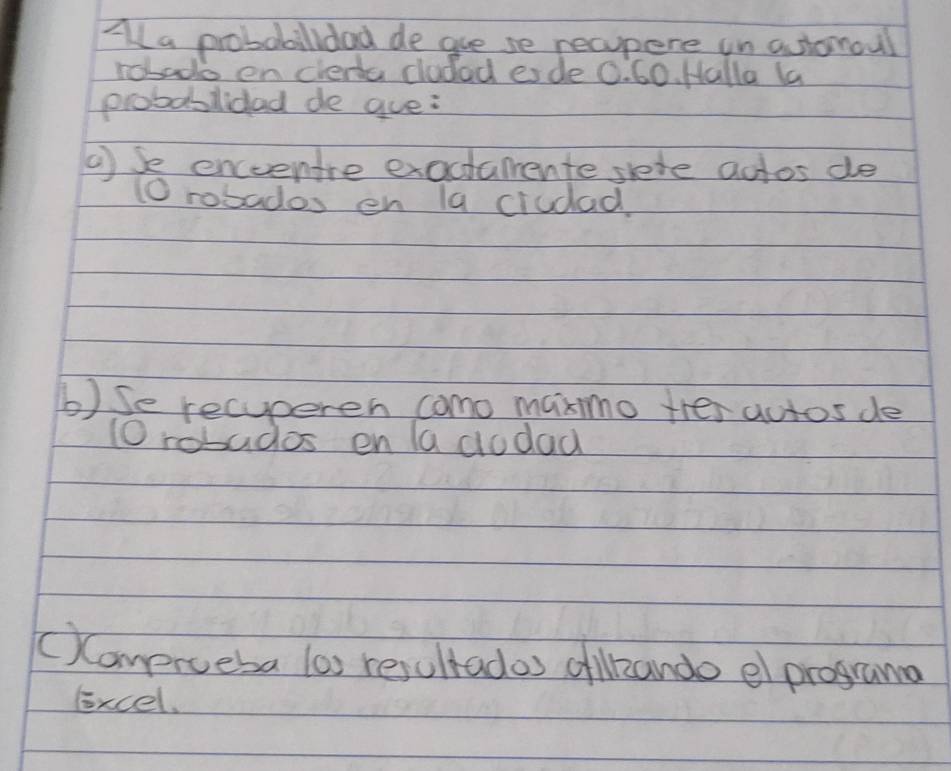 4 La probabilidad de que se recupere un automovil
robado en cierta ciudad es de 0.60. Halla la
probabilidad de que:
a) Se encuentre exactamente siete autos de
10 robados en la ciudad.
b) Se recuperen como maximo tres autos de
10 robados en la ciudad
C) Comprueba los resultados utilizando el programa
Excel.